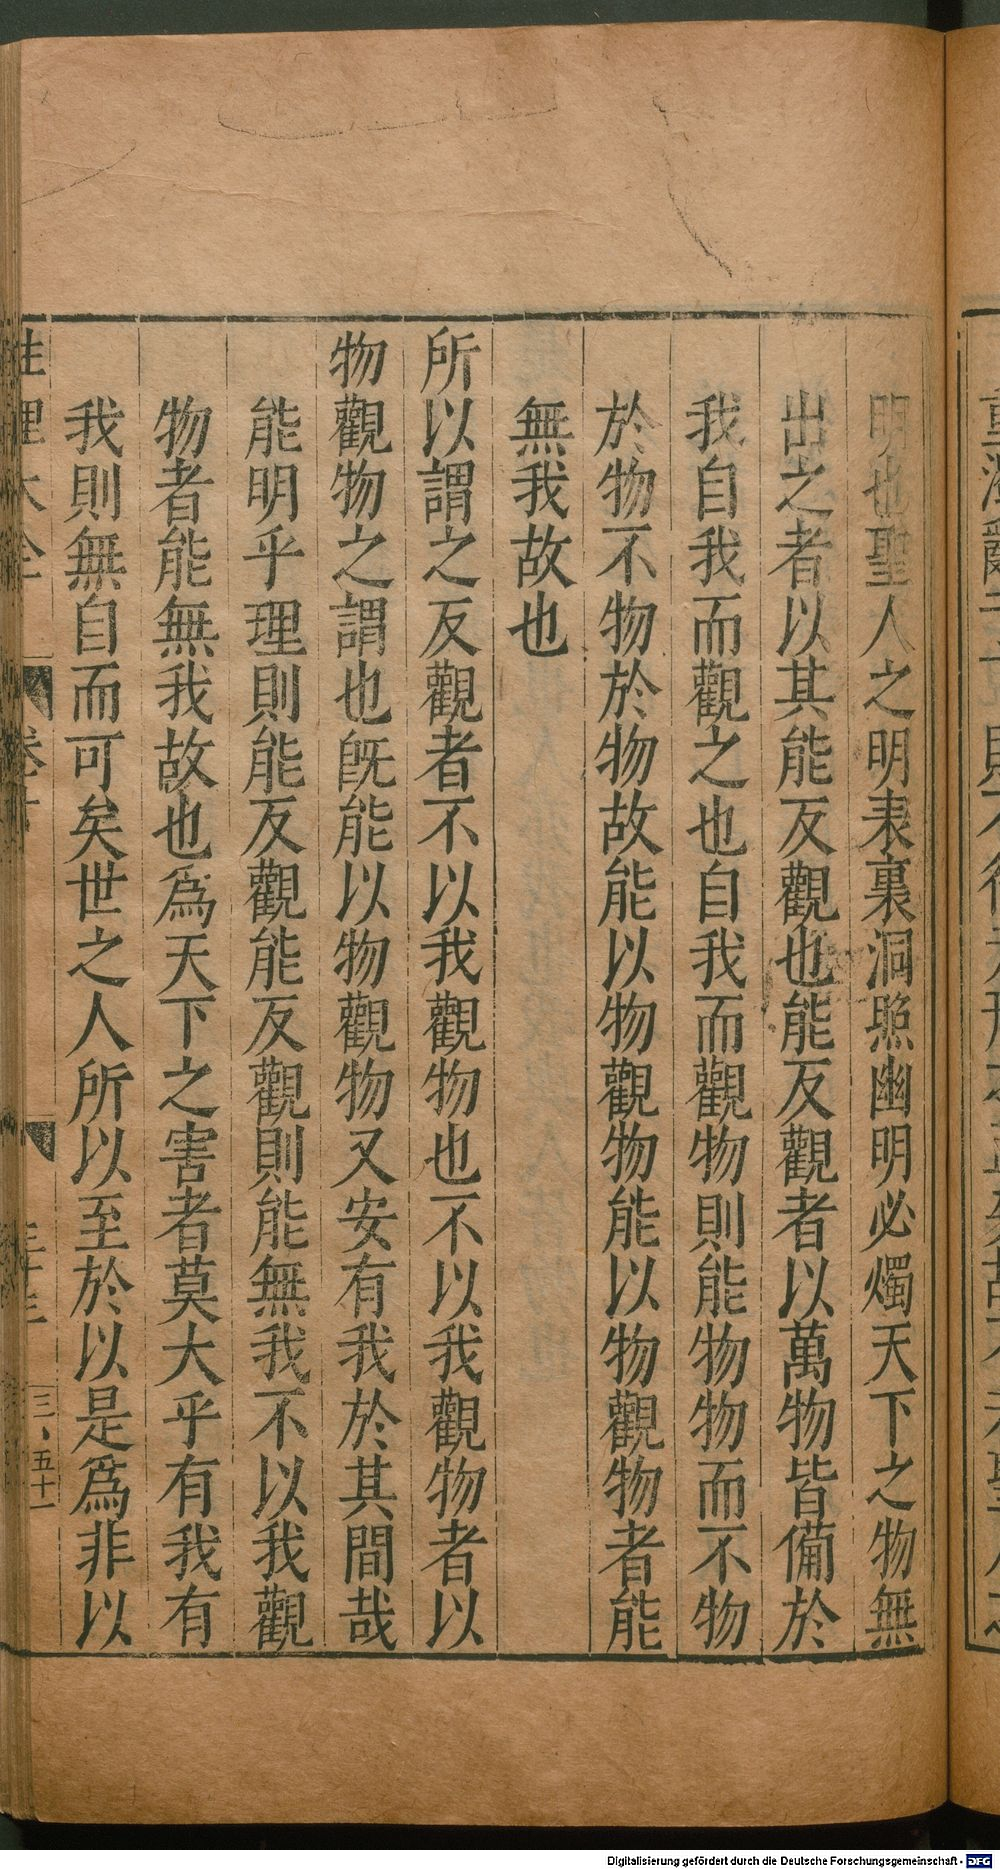 明也聖人之明表裏洞照幽明必燭天下之物無
出之者以其能反觀也能反觀者以萬物皆備於
我自我而觀之也自我而觀物則能物物而不物
於物不物於物故能以物觀物能以物觀物者能
無我故也
所以謂之反觀者不以我觀物也不以我觀物者以
物觀物之謂也旣能以物觀物又安有我於其間哉
能明乎理則能反觀能反觀則能無我不以我觀
物者能無我故也爲天下之害者莫大乎有我有
我則無自而可矣世之人所以至於以是爲非以
性理大全
三、五十一
Digitalisierung gefördert durch die Deutsche Forschungsgemeinschaft - DFG